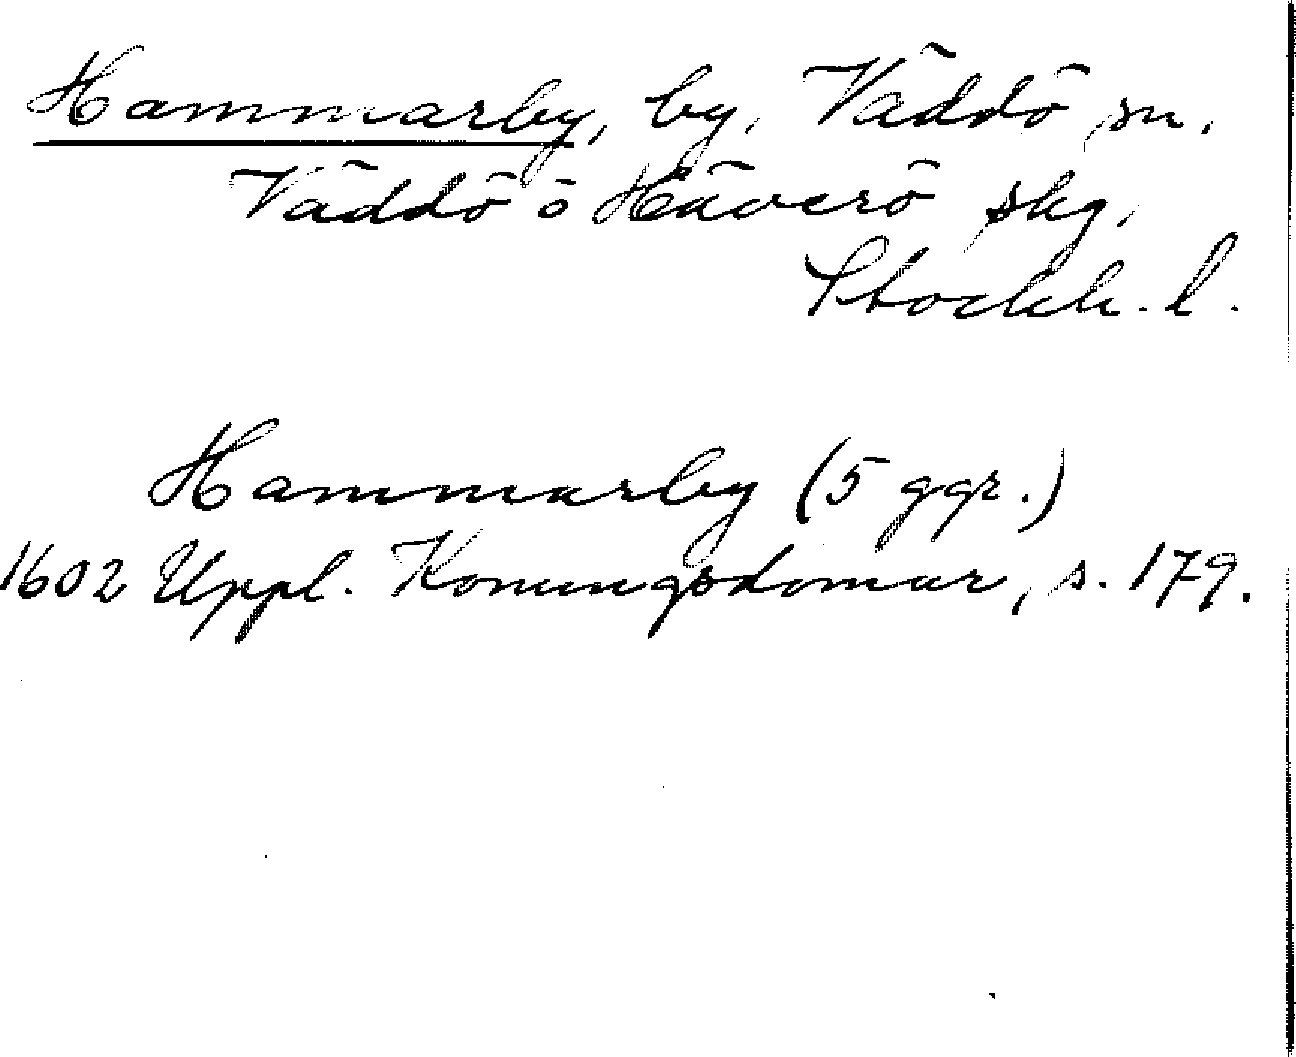 Hammarby, by, Väddö sn,
Väddö o Häverö skg,
Stockh. l.
Hammarby (5 ggr.)
1602 Uppl. Konungsdomar, s. 179.